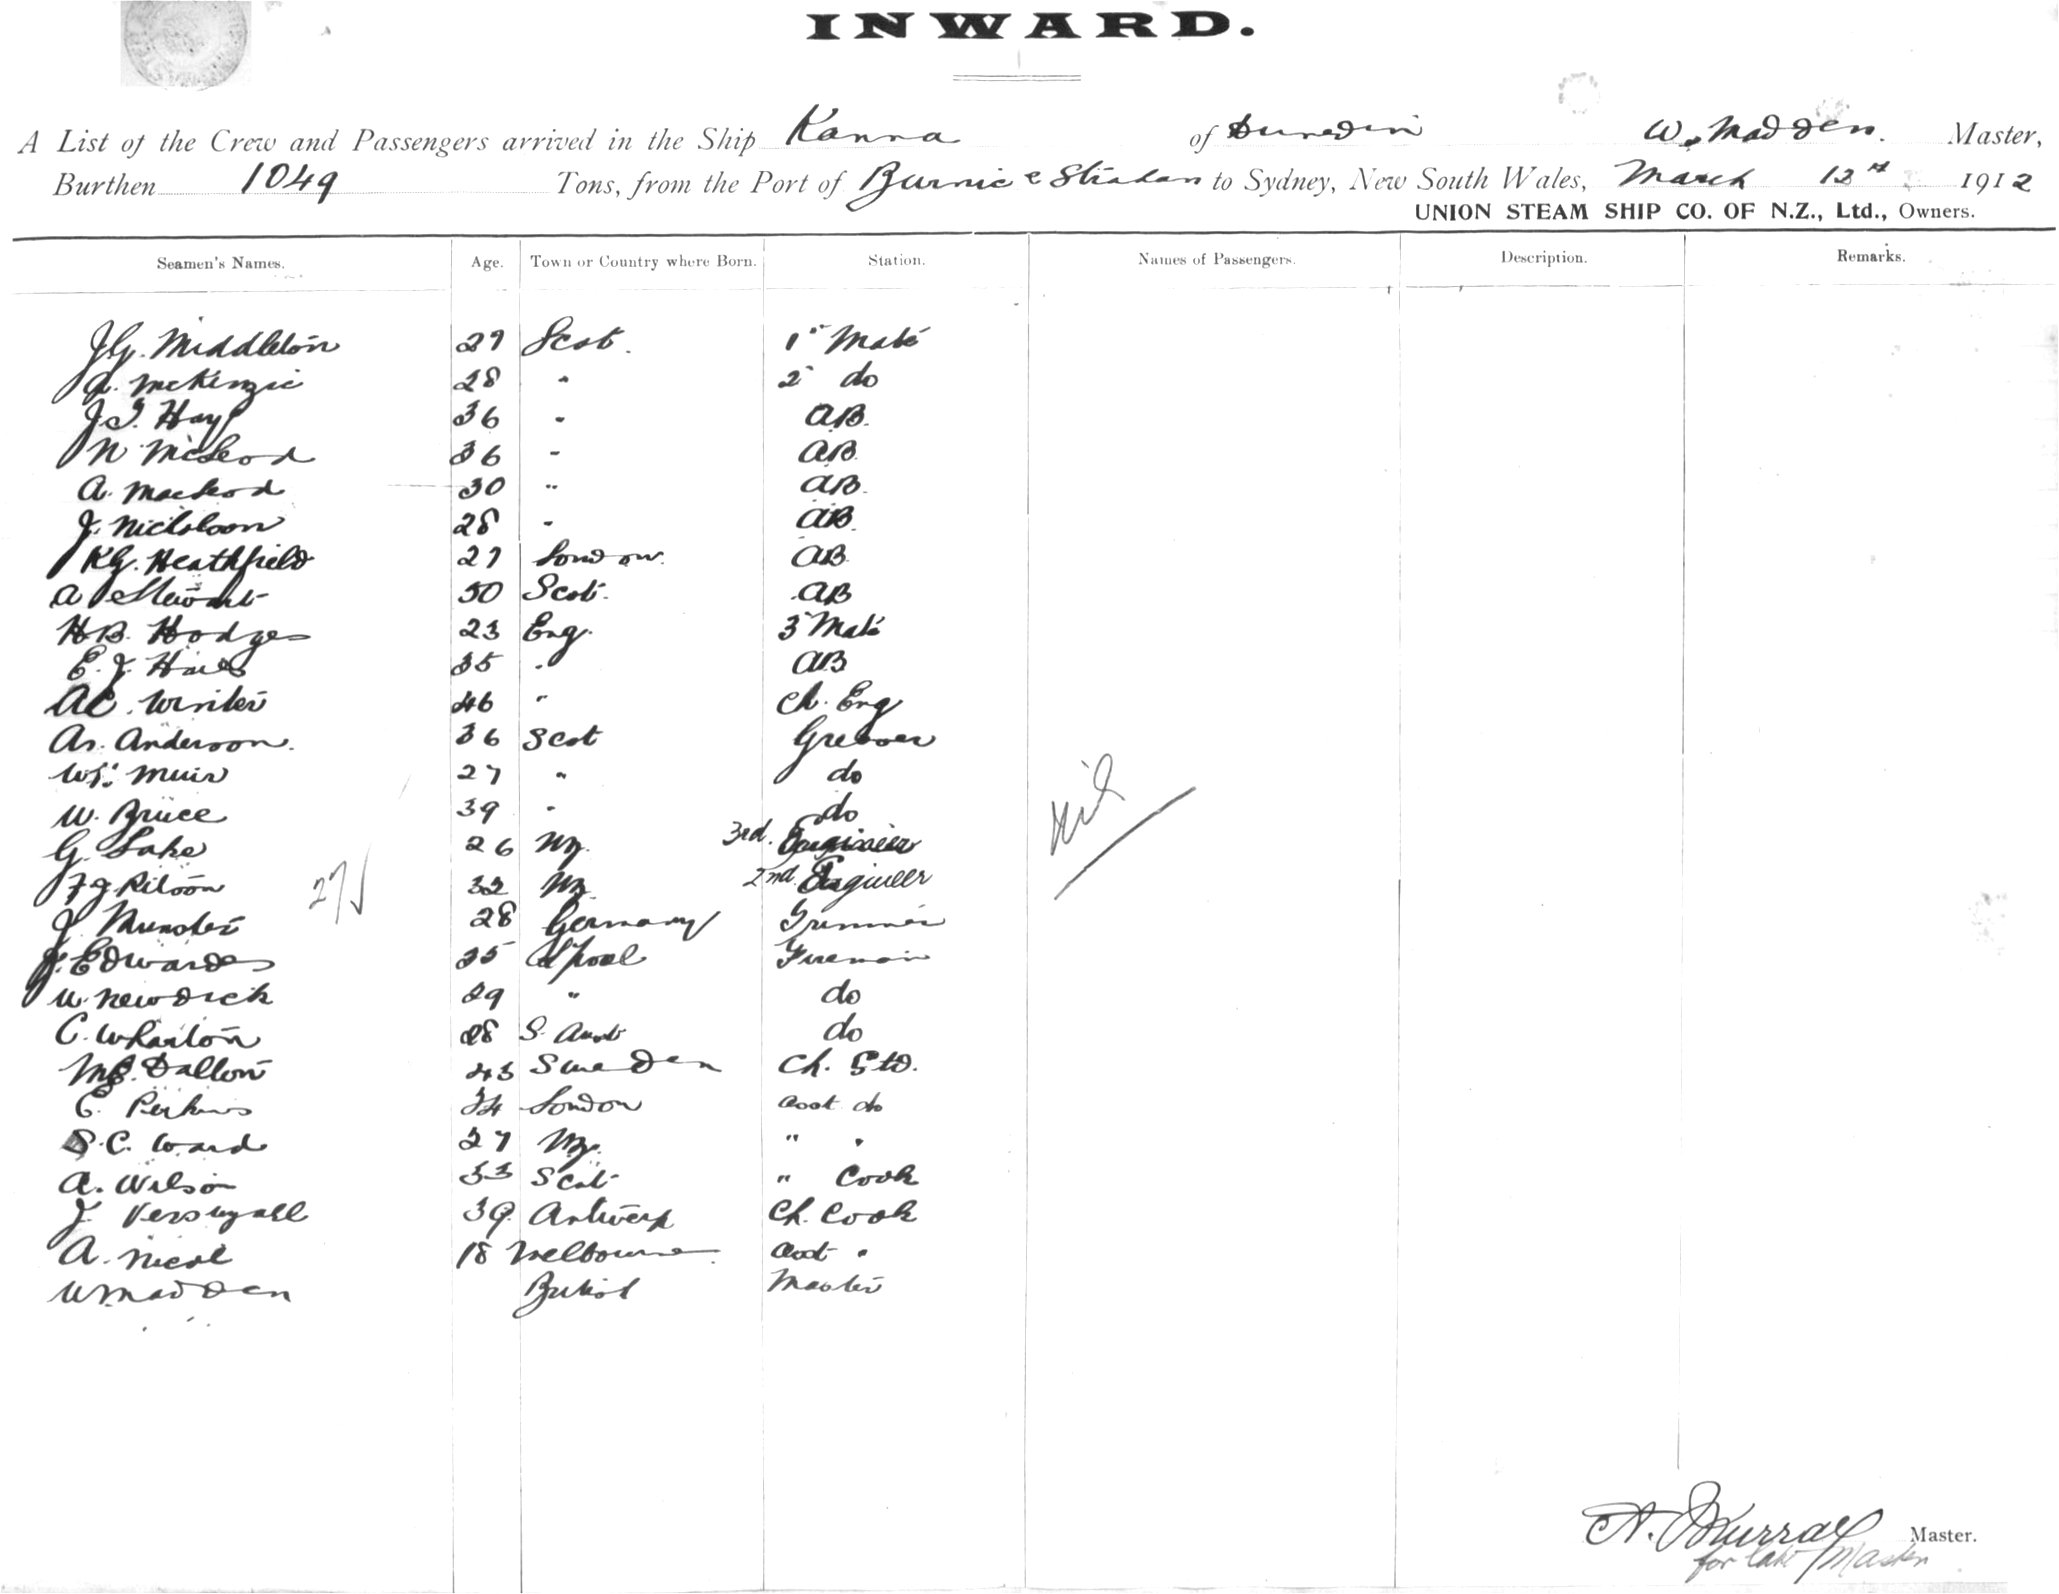 INWARD.
A List of the Crew and Passengers arrived in the Ship Kanna of Dunedin W. Madden. Master,
Burthen 1049 Tons, from the Port of Burnie & Strahan to Sydney, New South Wales, March 12th 1912
UNION STEAM SHIP CO. OF N.Z., Ltd., Owners.
Seamen's Names. Age. Town or Country where Born. Station. Names of Passengers. Description. Remarks.
J.G. Middleton 27 Scot. 1" Mate
A. McKenzie 28 " 2" do
J.T. Hay 36 " AB.
N McLeod 36 " AB.
A. MacLeod 30 " AB.
J. Nicholson 28 " AB.
K.G. Heathfield 27 London. AB
A Stewart 50 Scot. AB
H.B. Hodges 23 Eng. 3" Mate
E. J. 35 " AB
AC. Winter 46 " Ch. Eng
Ar. Anderson. 36 Scot Greaser
Wm. Muir 27 " do
W. Bruce 39 " do
G. Lake 26 NZ. 3rd. Engineer
F J Pilson 32 NZ. 2nd. Engineer
27
Nil
J Munster 28 Germany Trimmer
J. Edwards 25 L'pool Fireman
W. Newdick 29 " do
C. Wharton 28 S. Aust do
Dalton 43 Sweden Ch. Std.
C. Perkins 34 London Asst do
S. C. Ward 27 NZ. " "
A. Wilson 33 Scot " Cook
J. 39. Antwerp Ch. Cook
A. Nicol 18 Melbourne. Asst "
W. Madden British Master
A. Murray Master.
for late Master